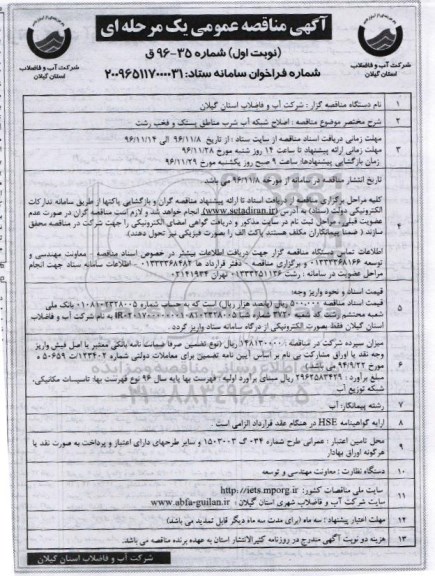 آگهی مناقصه عمومی یک مرحله ای
(نوبت اول) شماره ۳۵-۹۶ ق
شماره فراخوان سامانه ستاد: ۲۰۰۹۶۵۱۱۷۰۰۰۰۳۱
شرکت آب و فاضلاب
استان گیلان
شرکت آب و فاضلاب
استان گیلان
۱ نام دستگاه مناقصه گزار : شرکت آب و فاضلاب استان گیلان
۲ شرح مختصر موضوع مناقصه : اصلاح شبکه آب شرب مناطق پستک و فخب رشت
۳ مهلت زمانی دریافت اسناد مناقصه از سایت ستاد : از تاریخ ۹۶/۱۱/۸ الی ۹۶/۱۱/۱۴
مهلت زمانی ارائه پیشنهاد تا ساعت ۱۴ روز شنبه مورخ ۹۶/۱۱/۲۸
زمان بازگشایی پیشنهادها: ساعت ۹ صبح روز یکشنبه مورخ ۹۶/۱۱/۲۹
۴ تاریخ انتشار مناقصه در سامانه از مورخه ۹۶/۱۱/۸ می باشد.
کلیه مراحل برگزاری مناقصه از دریافت اسناد تا ارائه پیشنهاد مناقصه گران و بازگشایی پاکتها از طریق سامانه تدارکات
الکترونیکی دولت (ستاد) به آدرس (www.setadiran.ir) انجام خواهد شد و لازم است مناقصه گران در صورت عدم
عضویت قبلی، مراحل ثبت نام در سایت مذکور و دریافت گواهی امضای الکترونیکی را جهت شرکت در مناقصه محقق
سازند ( ضمنا پیمانکاران مکلف هستند پاکت الف را بصورت فیزیکی نیز تحویل دهند).
اطلاعات تماس دستگاه مناقصه گزار جهت دریافت اطلاعات بیشتر در خصوص اسناد مناقصه معاونت مهندسی و
توسعه ۰۱۳۳۳۳۶۸۱۶۶ و برگزاری مناقصه ، دفتر قرارداد ها ۰۱۳۳۳۳۶۸۴۸۴ - اطلاعات سامانه ستاد جهت انجام
مراحل عضویت در سامانه : رشت ۰۱۳۳۳۲۵۱۱۳۶ تهران ۰۲۱۴۱۹۳۴
۵ قیمت اسناد و نحوه واریز وجه:
قیمت اسناد مناقصه ۵۰۰۰۰۰ ریال (پانصد هزار ریال) است که به حساب شماره ۰۱۰۸۱۰۲۳۲۸۰۰۵ بانک ملی
شعبه محتشم رشت کد شعبه ۳۷۲۰ شماره شبا به نام شرکت آب و فاضلاب
استان گیلان فقط بصورت الکترونیکی از درگاه سامانه ستاد واریز گردد .
۶ میزان سپرده شرکت در مناقصه : ۱۴۸۱۳۰۰۰۰۰ ریال (نوع تضمین صرفا ضمانت نامه بانکی معتبر یا اصل فیش واریز
وجه نقد یا اوراق مشارکت بی نام بر اساس آیین نامه تضمین برای معاملات دولتی شماره ۱۲۳۴۰۲/ت ۵۰۶۵۹ ه
مورخ ۹۴/۹/۲۲ می باشد)
مبلغ برآورد : ۲۹۶۲۵۸۳۴۳۹ ریال مبنای برآورد اولیه: فهرست بها پایه سال ۹۶ نوع فهرست بها: تاسیسات مکانیکی،
شبکه توزیع آب
۷ رشته پیمانکار: آب
۸ ارایه گواهینامه HSE در هنگام عقد قرارداد الزامی است .
۹ محل تامین اعتبار : عمرانی طرح شماره ۰۳۴ گ ۱۵۰۳۰۰۳ و سایر طرحهای دارای اعتبار و پرداخت به صورت نقد یا
هرگونه اوراق بهادار
۱۰ دستگاه نظارت : معاونت مهندسی و توسعه
۱۱ سایت ملی مناقصات کشور: http://iets.mporg.ir
سایت شرکت آب و فاضلاب شهری استان گیلان : www.abfa-guilan.ir
۱۲ مهلت اعتبار پیشنهاد : سه ماه (برای مدت سه ماه دیگر قابل تمدید می باشد)
۱۳ هزینه دو نوبت آگهی مندرج در روزنامه کثیرالانتشار استان به عهده برنده مناقصه می باشد.
شرکت آب و فاضلاب استان گیلان